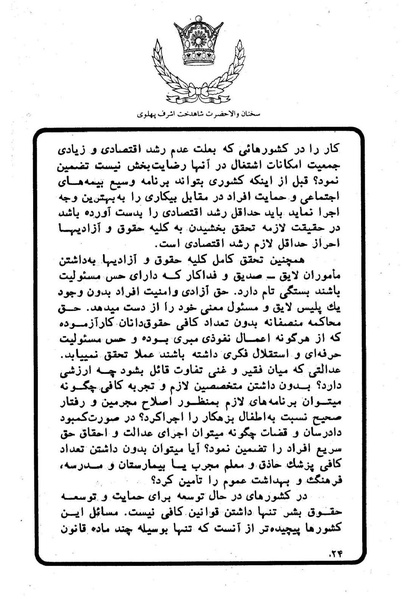 سخنان والاحضرت شاهدخت اشرف پهلوی
کار را در کشورهائی که بعلت عدم رشد اقتصادی و زیادی
جمعیت امکانات اشتغال در آنها رضایت‌بخش نیست تضمین
نمود؟ قبل از اینکه کشوری بتواند برنامه وسیع بیمه‌های
اجتماعی و حمایت افراد در مقابل بیکاری را به‌بهترین وجه
اجرا نماید باید حداقل رشد اقتصادی را بدست آورده باشد
در حقیقت لازمه تحقق بخشیدن به کلیه حقوق و آزادیها
احراز حداقل لازم رشد اقتصادی است.
همچنین تحقق کامل کلیه حقوق و آزادیها به‌داشتن
ماموران لایق ـ صدیق و فداکار که دارای حس مسئولیت
باشند بستگی تام دارد. حق آزادی وامنیت افراد بدون وجود
یك پلیس لایق و مسئول معنی خود را از دست میدهد. حق
محاکمه منصفانه بدون تعداد کافی حقوق‌دانان کارآزموده
که از هرگونه اعمال نفوذی مبری بوده و حس مسئولیت
حرفه‌ای و استقلال فکری داشته باشند عملا تحقق نمییابد.
عدالتی که میان فقیر و غنی تفاوت قائل بشود چه ارزشی
دارد؟ بدون داشتن متخصصین لازم و تجربه کافی چگونه
میتوان برنامه‌های لازم بمنظور اصلاح مجرمین و رفتار
صحیح نسبت به‌اطفال بزهکار را اجراکرد؟ در صورت‌کمبود
دادرسان و قضات چگونه میتوان اجرای عدالت و احقاق حق
سریع افراد را تضمین نمود؟ آیا میتوان بدون داشتن تعداد
کافی پزشك حاذق و معلم مجرب یا بیمارستان و مدرسه،
فرهنگ و بهداشت عموم را تأمین کرد؟
در کشورهای در حال توسعه برای حمایت و توسعه
حقوق بشر تنها داشتن قوانین کافی نیست. مسائل این
کشورها پیچیده‌تر از آنست که تنها بوسیله چند ماده قانون
۲۴.